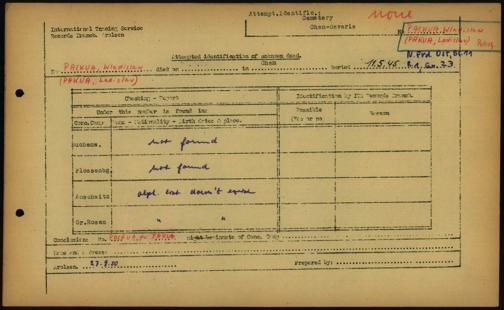 Attempt.Identific.:
Cemetery
Cham-Bavaria
none
International Tracing Service
Records Branch. Arolsen
No PAIKUA, Wladislaw
(PAKUA, Ladislav)
Attempted identification of unknown dead.
Cham
No. PAIKUA, Wladislaw died on in buried 11.5.45
(PAKUA, Ladislav)
Gr. 23
Checking - Report
Identification by ITS Records Branch.
Under this number is found in:
Possible
Reason
Conc.Camp Name - Nationality - Birth date & place.
(Yes or no
Buchenw. not found
Flossenbg. not found
Auschwitz alph. list doesn't exist
Gr.Rosen " "
Conclusion: No. PAIKUA or PAKUA might be inmate of Conc. Camp
Arolsen. Prepared by: